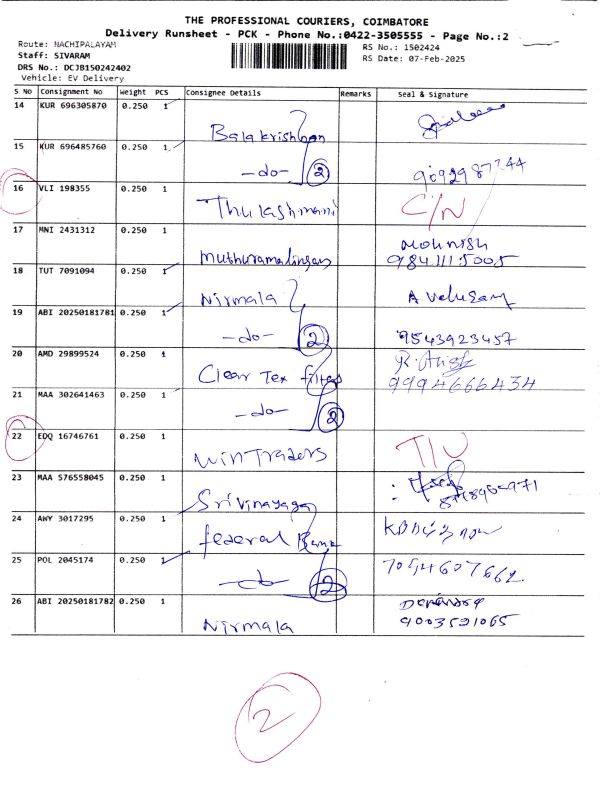 THE PROFESSIONAL COURIERS, COIMBATORE
Delivery Runsheet - PCK - Phone No.:0422-3505555 - Page No.:2
Route: NACHIPALAYAM
RS No.: 1502424
Staff: SIVARAM
RS Date: 07-Feb-2025
DRS No.: DCJB150242402
Vehicle: EV Delivery
S NO Consignment No Weight PCS Consignee Details Remarks Seal & Signature
14 KUR 696305870 0.250 1 Balakrishnan
15 KUR 696485760 0.250 1 -do- 2
16 VLI 198355 0.250 1 Thulashmani C/N
17 MNI 2431312 0.250 1 Muthuramalingam Mohnish
9841115005
18 TUT 7091094 0.250 1 Nirmala A Velusamy
19 ABI 20250181781 0.250 1 -do- 2 9543923457
20 AMD 29899524 0.250 1 Clear Tex filters
9994666434
21 MAA 302641463 0.250 1 -do- 2
22 EDQ 16746761 0.250 1 Win Traders
23 MAA 576558045 0.250 1 Srivinayaga
24 AWY 3017295 0.250 1 federal Bank
25 POL 2045174 0.250 1 -do- 2
26 ABI 20250181782 0.250 1 Nirmala
9003591065
2